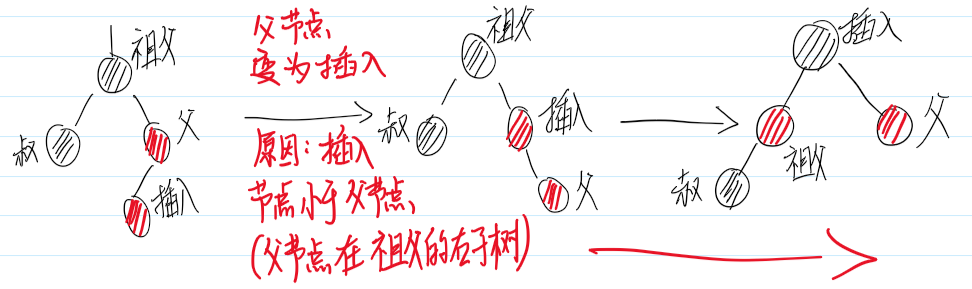 祖父
叔
父
插入
父节点
变为插入
原因:插入
节点小于父节点
(父节点在祖父的右子树)
祖父
叔
插入
父
插入
祖父
父
叔